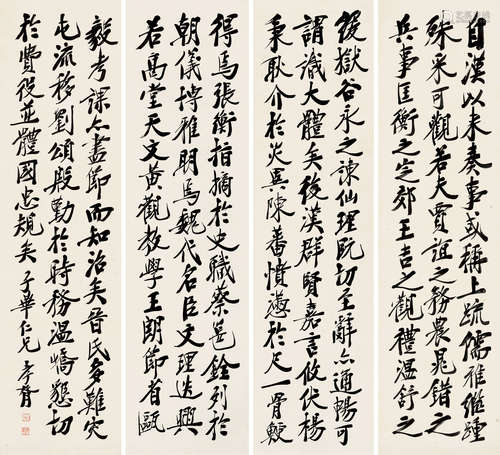 自漢以來奏事或稱上疏儒雅繼踵
殊采可觀若夫賈誼之務農晁錯之
兵事匡衡之定郊王吉之觀禮溫舒之
緩獄谷永之諫仙理既切至辭亦通暢可
謂識大體矣後漢群賢嘉言攸伏楊
秉耿介於災異陳蕃憤懣於尺一骨鯁
得焉張衡指摘於史職蔡邕銓列於
朝儀博雅明焉魏代名臣文理迭興
若高堂天文黃觀教學王朗節省甄
毅考課亦盡節而知治矣晉氏多難災
屯流移劉頌殷勤於時務溫嶠懇切
於費役並體國忠規矣 子畢仁兄 孝胥